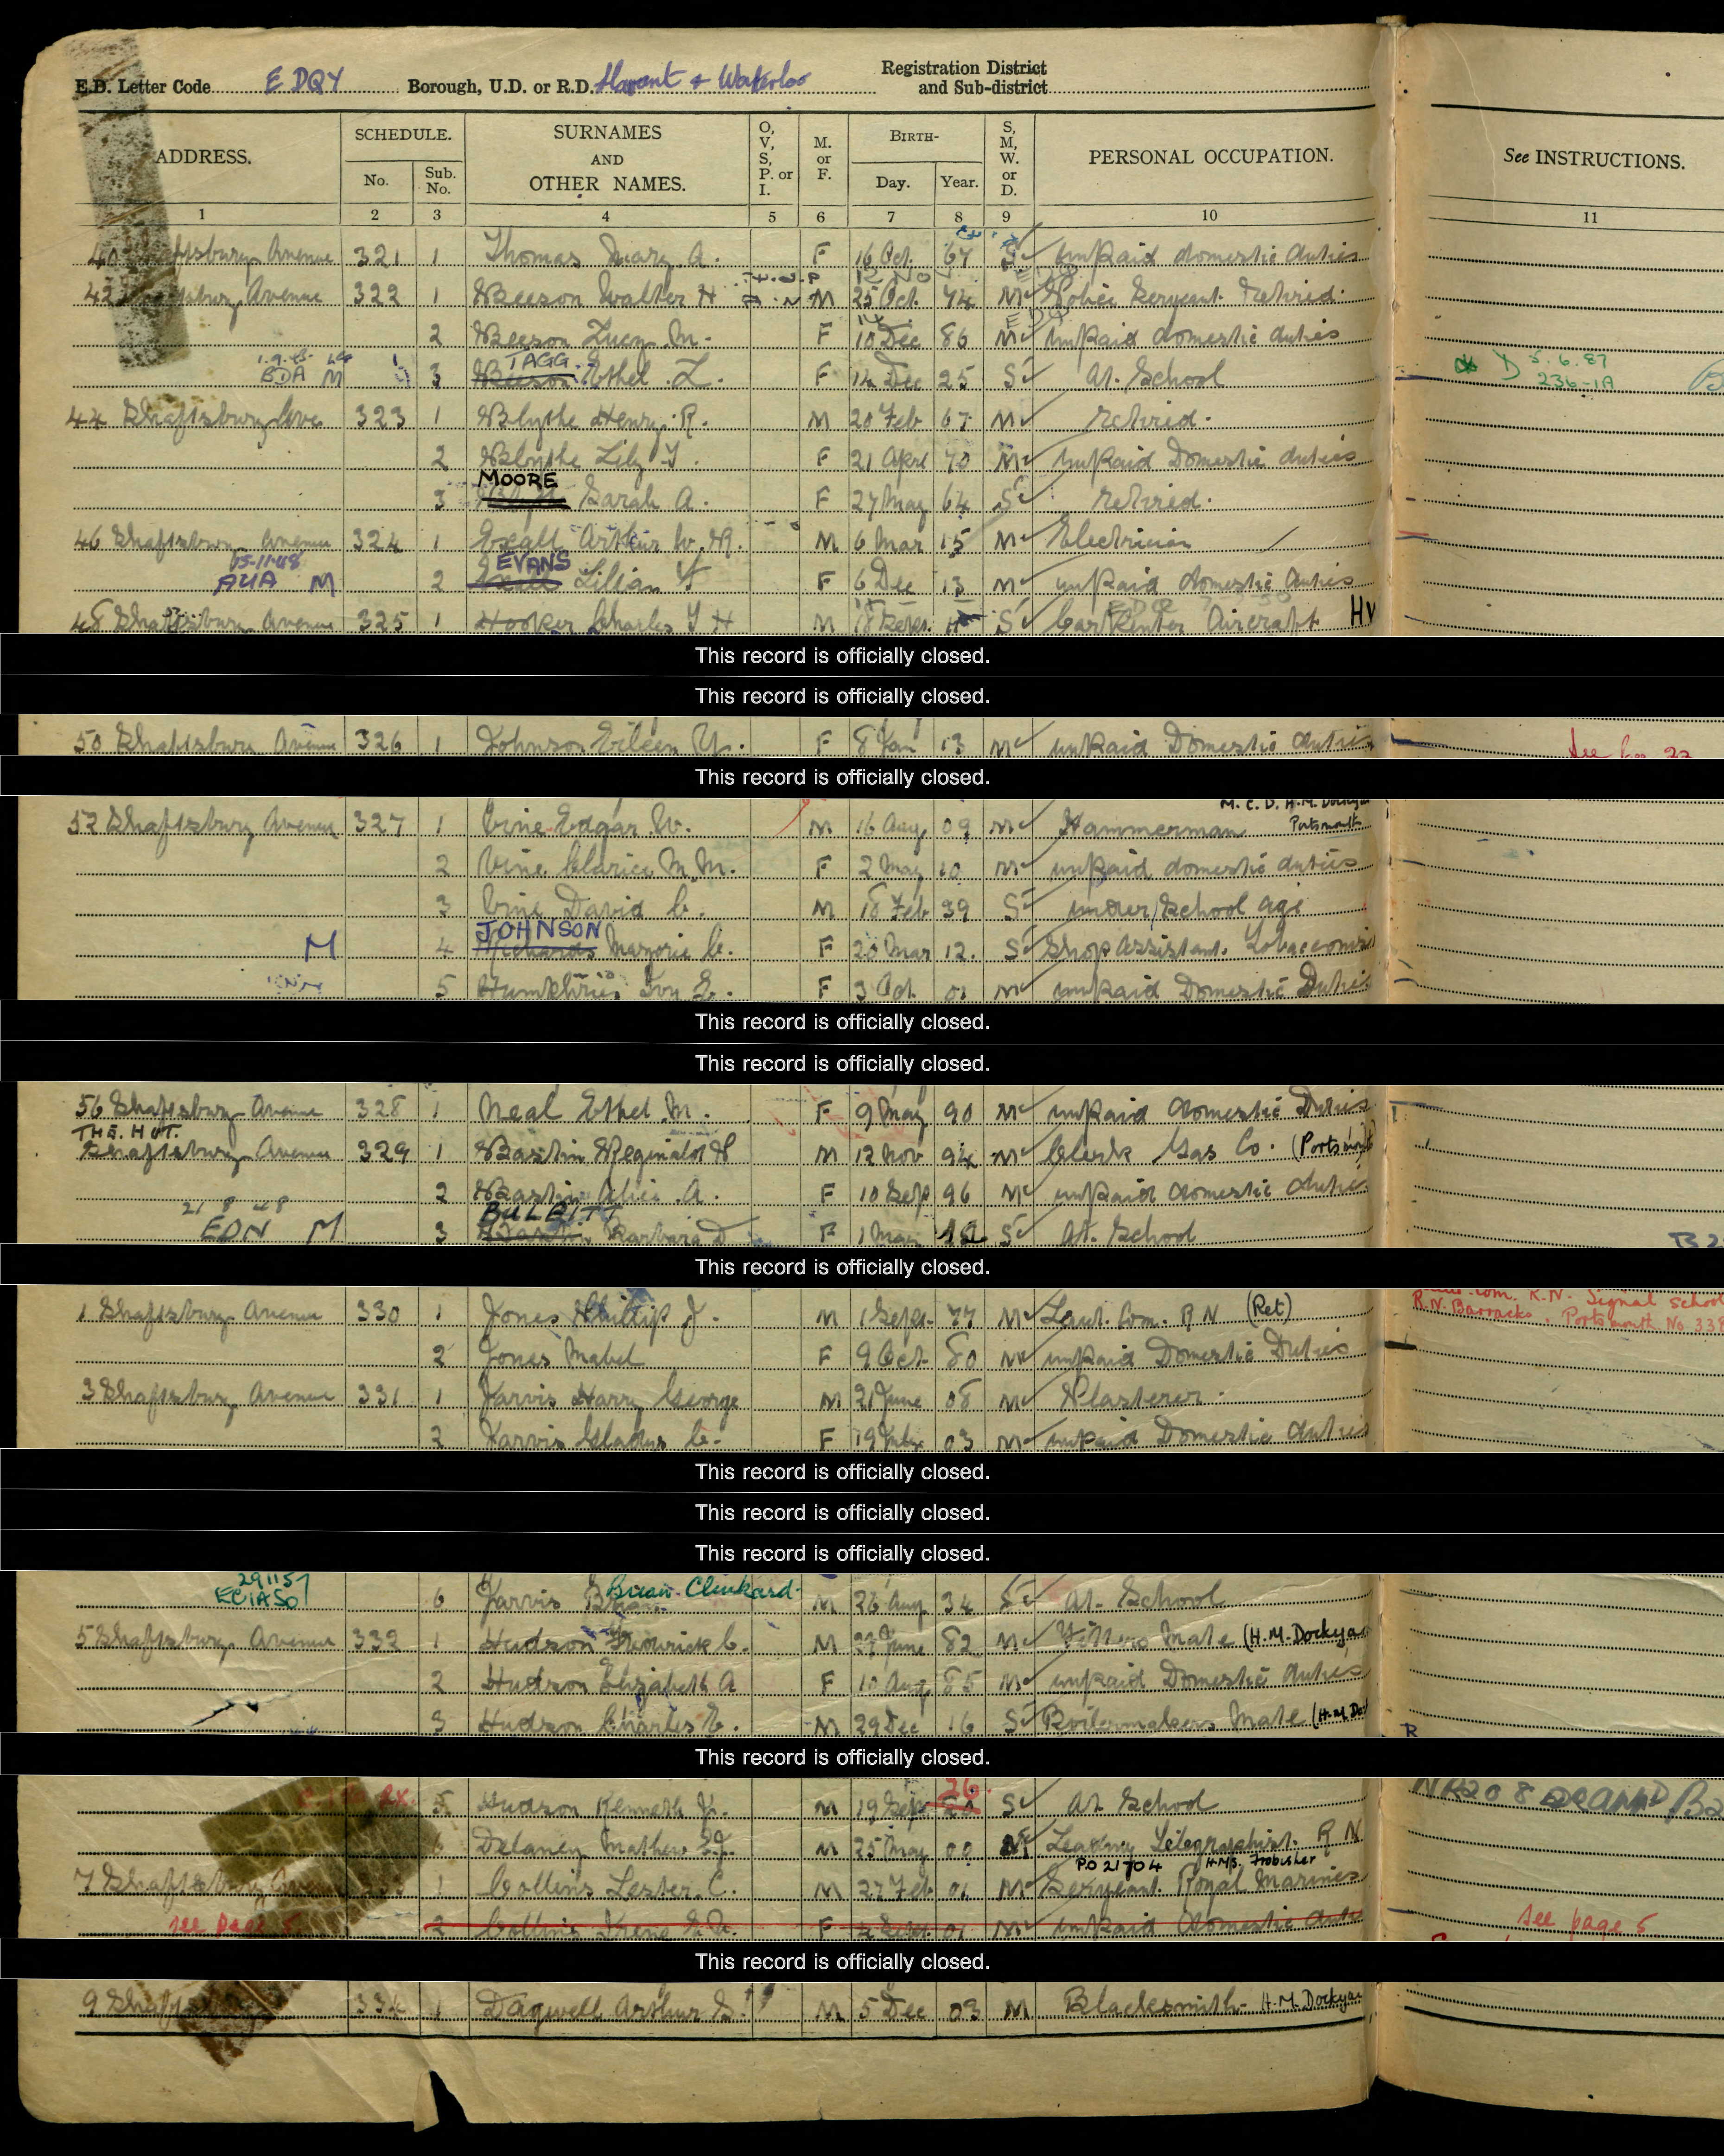 E.D. Letter Code EDQY Borough, U.D. or R.D. Havant & Waterloo Registration District and Sub-district
ADDRESS. SCHEDULE. No. Sub. No. SURNAMES AND OTHER NAMES. O, V, S, P. or I. M. or F. BIRTH- Day. Year. S, M, W. or D. PERSONAL OCCUPATION. See INSTRUCTIONS.
1 2 3 4 5 6 7 8 9 10 11
40 Shaftsbury Avenue 321 1 Thomas Mary A. F 16 Oct. 67 S unpaid domestic duties
42 Avenue 322 1 Beeson Walter H M 25 Oct. 74 M Police Sergeant. retired.
2 Beeson Lucy M. F 10 Dec 86 M unpaid domestic duties
TAGG
BDA M 3 Beeson Ethel L. F 14 Dec 25 S At. School D 5.6.87 236-1A
44 Shaftsbury Ave 323 1 Blythe Henry R. M 20 Feb 67 M retired.
2 Blythe Lily F 21 Aprl 70 M unpaid Domestic duties
MOORE
3 Sarah A. F 27 May 64 S retired.
46 Shaftsbury Avenue 324 1 Arthur W. M 6 Mar 15 M Electrician
EVANS
AUA M 2 Lilian F 6 Dec 13 M unpaid domestic duties
48 Shaftsbury Avenue 325 1 Hooker Charles M 18 Sept. S Carpenter Aircraft HV
This record is officially closed.
This record is officially closed.
50 Shaftsbury Avenue 326 1 Johnson Eileen F 8 Jan 13 M unpaid Domestic duties See
This record is officially closed.
M.E.D. H.M. Dockyard
52 Shaftsbury Avenue 327 1 Vine Edgar W. M 16 Aug 09 M Hammerman Portsmouth
2 Vine Clarice M. M. F 2 May 10 M unpaid domestic duties
3 Vine David C. M 18 Feb 39 S under School age
JOHNSON
M 4 Richards Marjorie C. F 20 Mar 12. S Shop Assistant.
5 Humphries Ivy E. F 3 Oct. 01 M unpaid Domestic Duties
This record is officially closed.
This record is officially closed.
56 Shaftsbury Avenue 328 1 Neal Ethel M. F 9 May 90 M unpaid domestic Duties
THE. HUT.
Shaftsbury Avenue 329 1 Bastin Reginald H M 12 Nov 94 M Clerk Gas Co. (Portsmouth)
2 Bastin Alice A. F 10 Sep 96 M unpaid domestic duties
21 8 48 BULBITT
EDN M 3 Barbara D F 1 Mar S At. School
This record is officially closed.
1 Shaftsbury Avenue 330 1 Jones Phillip J. M 1 Sept. 77 M Leut. Com. R N (Ret) R.N. Signal School
R.N. Barracks. Portsmouth. No 338
2 Jones Mabel F 9 Oct 80 M unpaid Domestic Duties
3 Shaftsbury Avenue 331 1 Jarvis Harry George M 21 June 08 M Plasterer.
2 Jarvis Gladys C. F 19 July 03 M unpaid Domestic duties
This record is officially closed.
This record is officially closed.
This record is officially closed.
291157 Brian Clinkard
6 Jarvis Brian M 26 Aug 34 S At. School
5 Shaftsbury Avenue 332 1 Hudson Frederick C. M 27 June 82 M Fitters Mate (H.M. Dockyard
2 Hudson Elizabeth A F 10 Aug 85 M unpaid Domestic duties
3 Hudson Charles E. M 29 Dec 16 S Boilermakers Mate (H.M. Doc
R
This record is officially closed.
26.
5 Hudson Kenneth M 19 Sep S At School
Delaney Mathew M 25 May 00 Leading Telegraphist. R N
PO 21704 HMS. Frobisher
7 Shaftsbury 1 Collins Lester C. M 27 Feb 01 M Sergeant. Royal Marines
see page 5 2 Collins Irene F Sept. 01 M unpaid domestic duties see page 5
This record is officially closed.
9 334 1 Dagwell Arthur G. M 5 Dec 03 M Blacksmith H.M. Dockyard